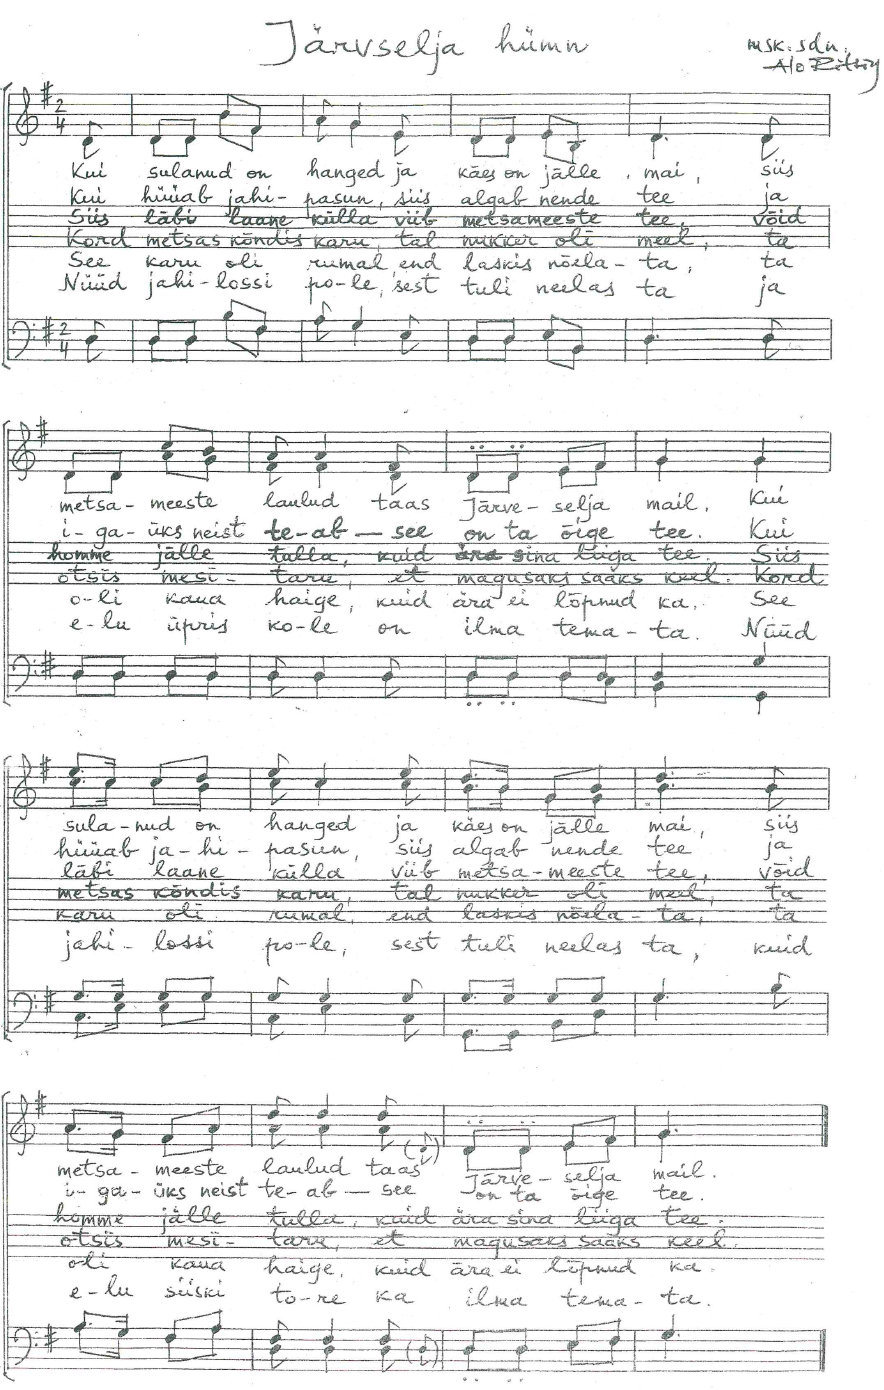 Järvselja hümn
msk. sdn.
Alo Ritsing
2 4
Kui sulanud on hanged ja käes on jälle mai, siis
Kui hüüab jahi- pasun, siis algab nende tee ja
Siis läbi laane külla viib metsameeste tee, võid
Kord metsas kõndis karu, tal nukker oli meel, ta
See karu oli rumal, end laskis nõela- ta, ta
Nüüd jahi-lossi po-le, sest tuli neelas ta ja
2 4
metsa- meeste laulud taas Järve- selja mail. Kui
i- ga- üks neist te-ab — see on ta õige tee. Kui
homme jälle tulla, kuid ära sina liiga tee. Siis
otsis mesi- taru, et magusaks saaks keel. Kord
o-li kaua haige, kuid ära ei lõpnud ka. See
e-lu üpris ko-le on ilma tema-ta. Nüüd
sula-nud on hanged ja käes on jälle mai, siis
hüüab ja-hi- pasun, siis algab nende tee ja
läbi laane külla viib metsa-meeste tee, võid
metsas kõndis karu, tal nukker oli meel, ta
karu oli rumal, end laskis nõela-ta, ta
jahi- lossi po-le, sest tuli neelas ta, kuid
metsa- meeste laulud taas Järve- selja mail.
i- ga- üks neist te-ab — see on ta õige tee.
homme jälle tulla, kuid ära sina liiga tee.
otsis mesi- taru, et magusaks saaks keel.
oli kaua haige, kuid ära ei lõpnud ka.
e-lu siiski to-re ka ilma tema-ta.